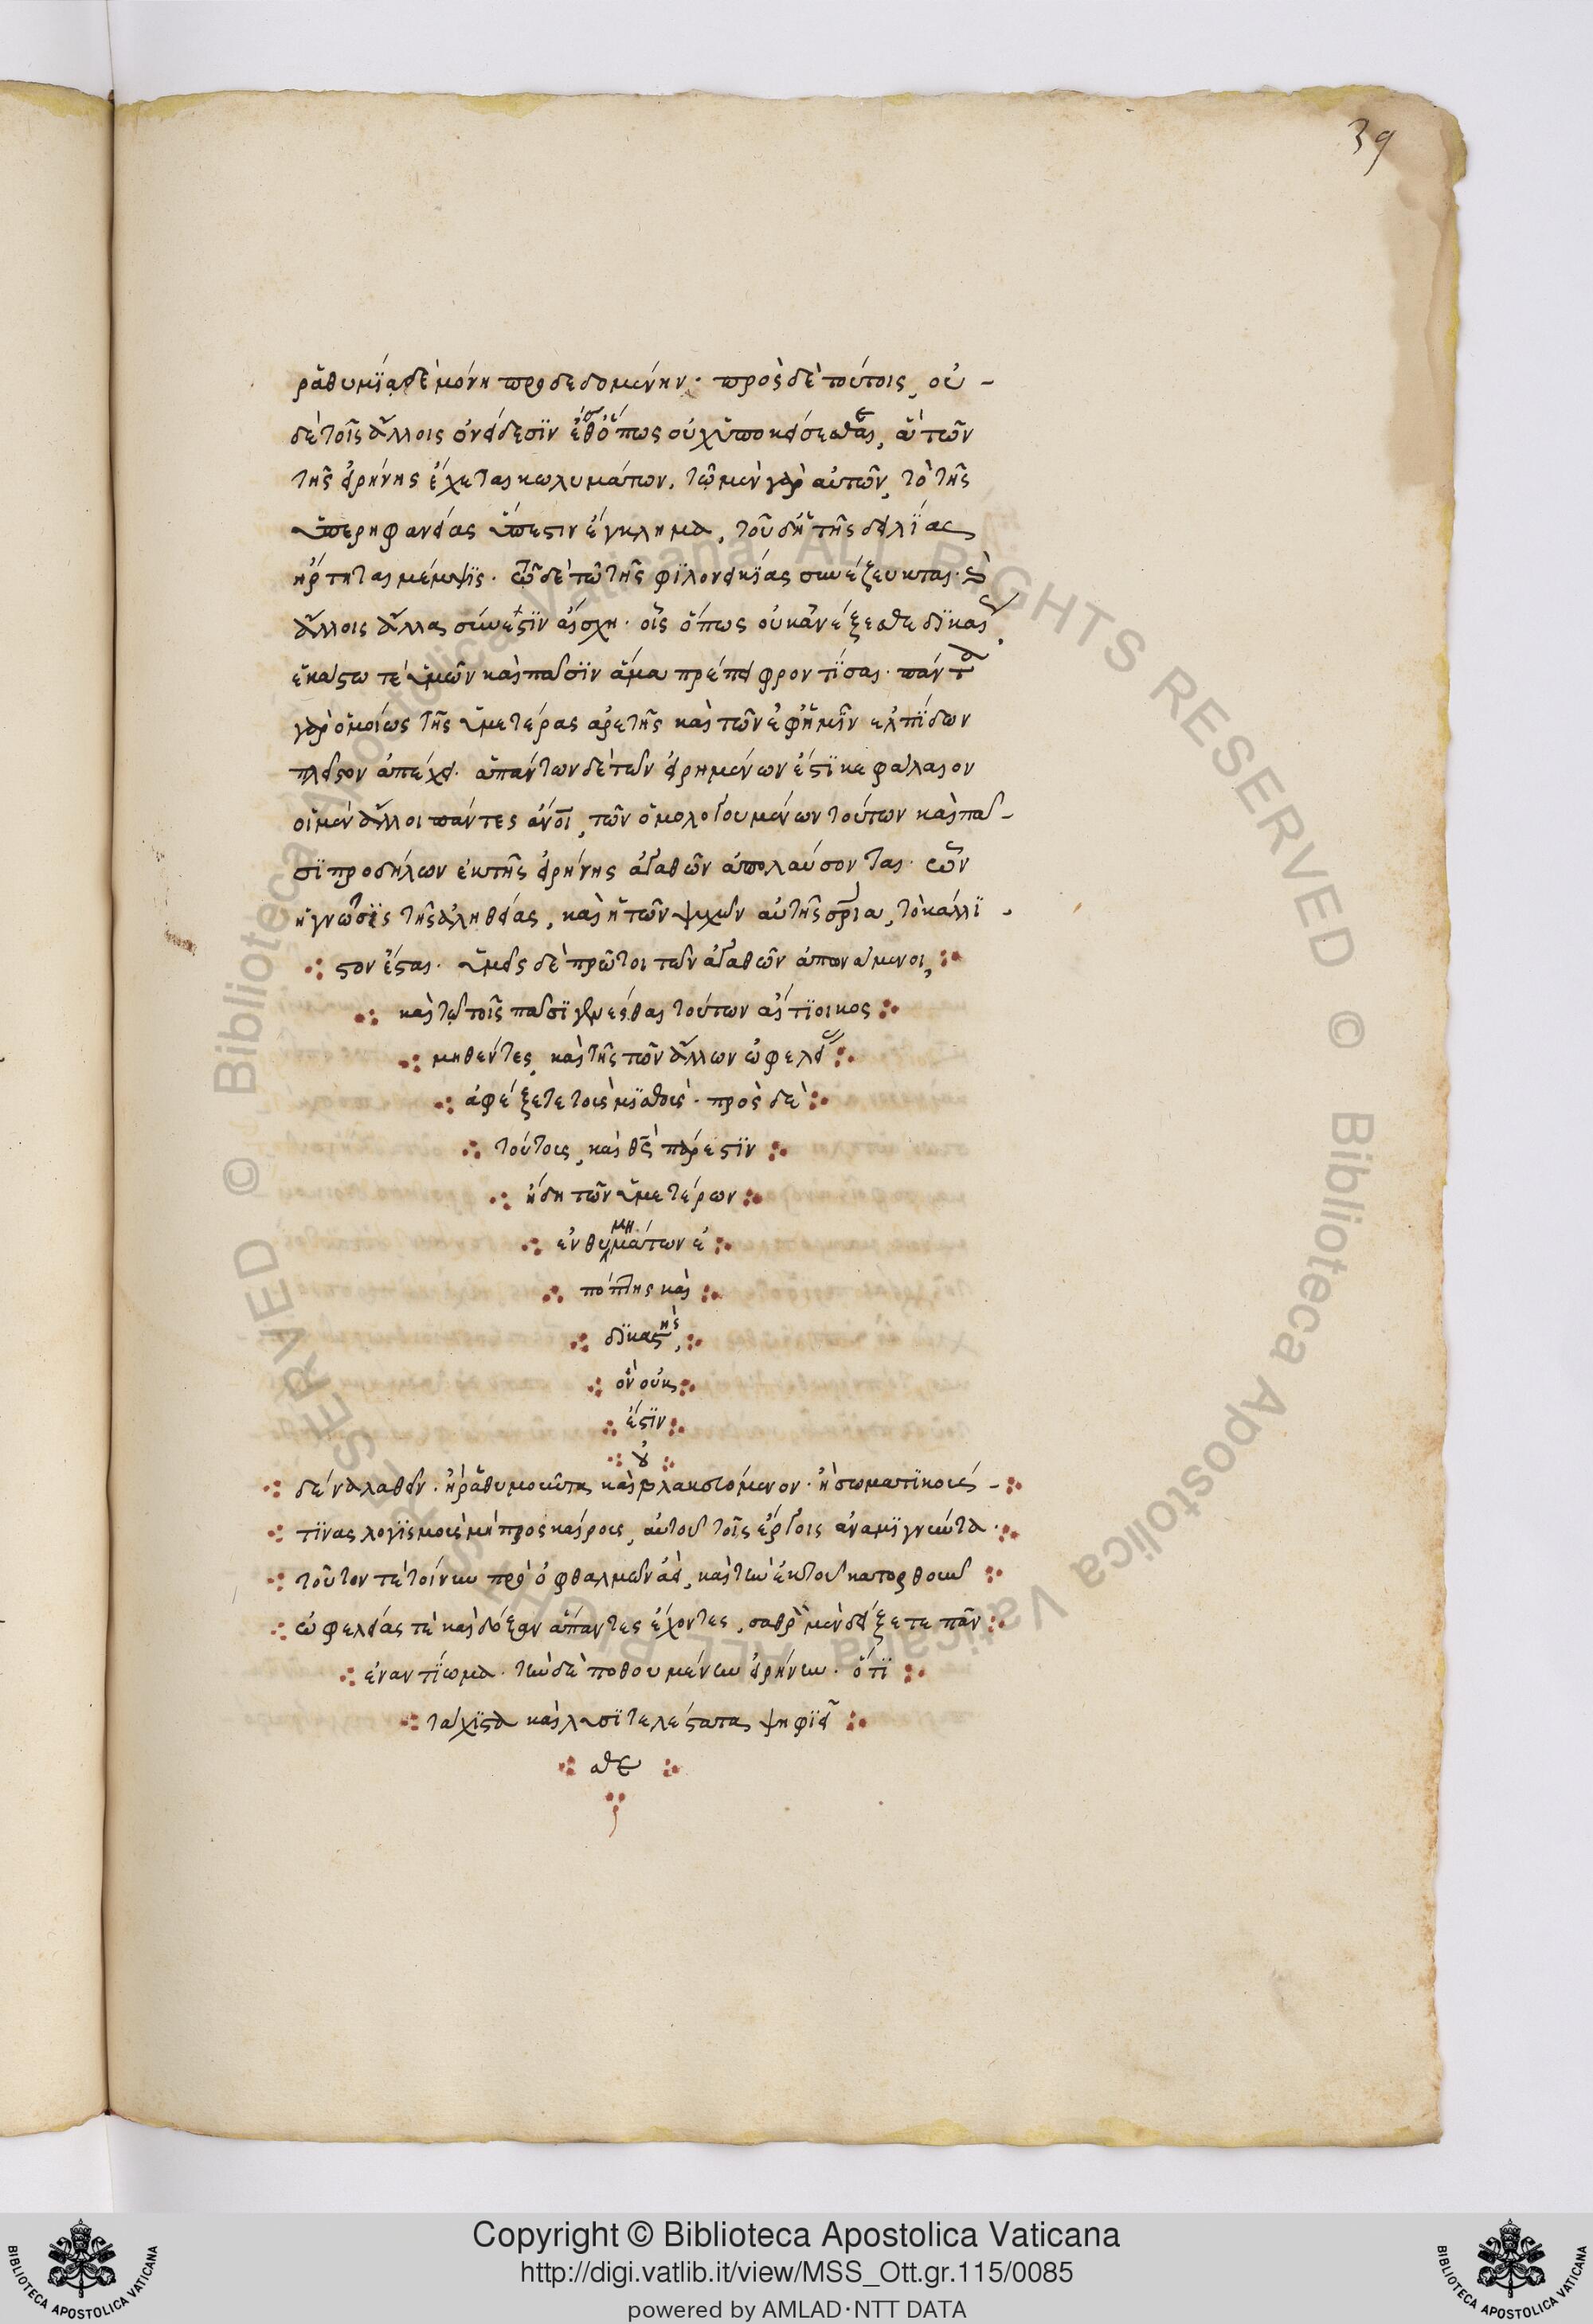 39
ῥᾳθυμίᾳ δὲ μόνῃ προδεδομένην· πρὸς δὲ τούτοις, οὐ-
δὲ τοῖς ἄλλοις ὀνείδεσιν ἔσθ' ὅπως οὐχ ὑποκείσεσθαι, ἃ τῶν
τῆς εἰρήνης ἔχεται κωλυμάτων. τῷ μὲν γὰρ αὐτῶν, τὸ τῆς
ὑπερηφανείας ὕπεστιν ἔγκλημα, τοῦ δ' ἡ τῆς δειλίας
ἤρτηται μέμψις. τῷ δὲ τὸ τῆς φιλονεικίας συνέζευκται. καὶ
ἄλλοις ἄλλα σύνεστιν αἴσχη. οἷς ὅπως οὐκ ἀνέξεσθε δίκαι
ἑκάστῳ τε ὑμῶν καὶ πᾶσιν ἅμα πρέπει φροντίσαι. πάντα
γὰρ ὁμοίως τῆς ὑμετέρας ἀρετῆς καὶ τῶν ἐφ' ἡμῖν ἐλπίδων
πλεῖστον ἀπέχει. ἁπάντων δὲ τῶν εἰρημένων ἐστὶ κεφάλαιον
οἱ μὲν ἄλλοι πάντες ἄνοι, τῶν ὁμολογουμένων τούτων καὶ πᾶ-
σι προδήλων ἐκ τῆς εἰρήνης ἀγαθῶν ἀπολαύσονται. ὧν
ἡ γνῶσις τῆς ἀληθείας, καὶ ἡ τῶν ψυχῶν αὐτῆς σρία, τὸ κάλλι-
στον ἔσται. ὑμεῖς δὲ πρῶτοι τῶν ἀγαθῶν ἀπονάμενοι,
καὶ τῷ τοῖς πᾶσι γενέσθαι τούτων αἴτιοι κοσ
μηθέντες, καὶ τῆς τῶν ἄλλων ὠφελείας
ἀφέξετε τοὺς μισθούς. πρὸς δὲ
τούτοις, καὶ θς πάρεστιν
ἤδη τῶν ὑμετέρων
ἐνθυμημάτων ἐ
πόπτης καὶ
δικαστὴς,
ὃν οὐκ
ἔστιν
οὐ
δένα λαθεῖν. ἢ ῥᾳθυμοῦντα καὶ βλακευόμενον. ἢ σωματικούς
τινας λογισμοὺς μὴ προσκαίρους, αὐτοῦ τοῖς ἔργοις ἀναμιγνύντα.
τοῦτόν τε τοίνυν πρὸ ὀφθαλμῶν ἀεὶ, καὶ τὴν ἐκ τοῦ κατορθοῦν
ὠφέλειάν τε καὶ δόξαν ἅπαντες ἔχοντες, σαθρὸν μὲν δείξετε πᾶν
ἐναντίωμα. τὴν δὲ ποθουμένην εἰρήνην. ὅτι
τάχιστα καὶ λυσιτελέστατα ψηφιεῖ
σθε